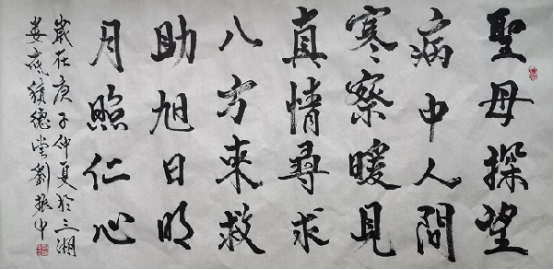 聖母探望
病中人問
寒察暖見
真情尋求
八方來救
助旭日明
月照仁心
歲在庚子仲夏於三湘
婁底德堂劉振中